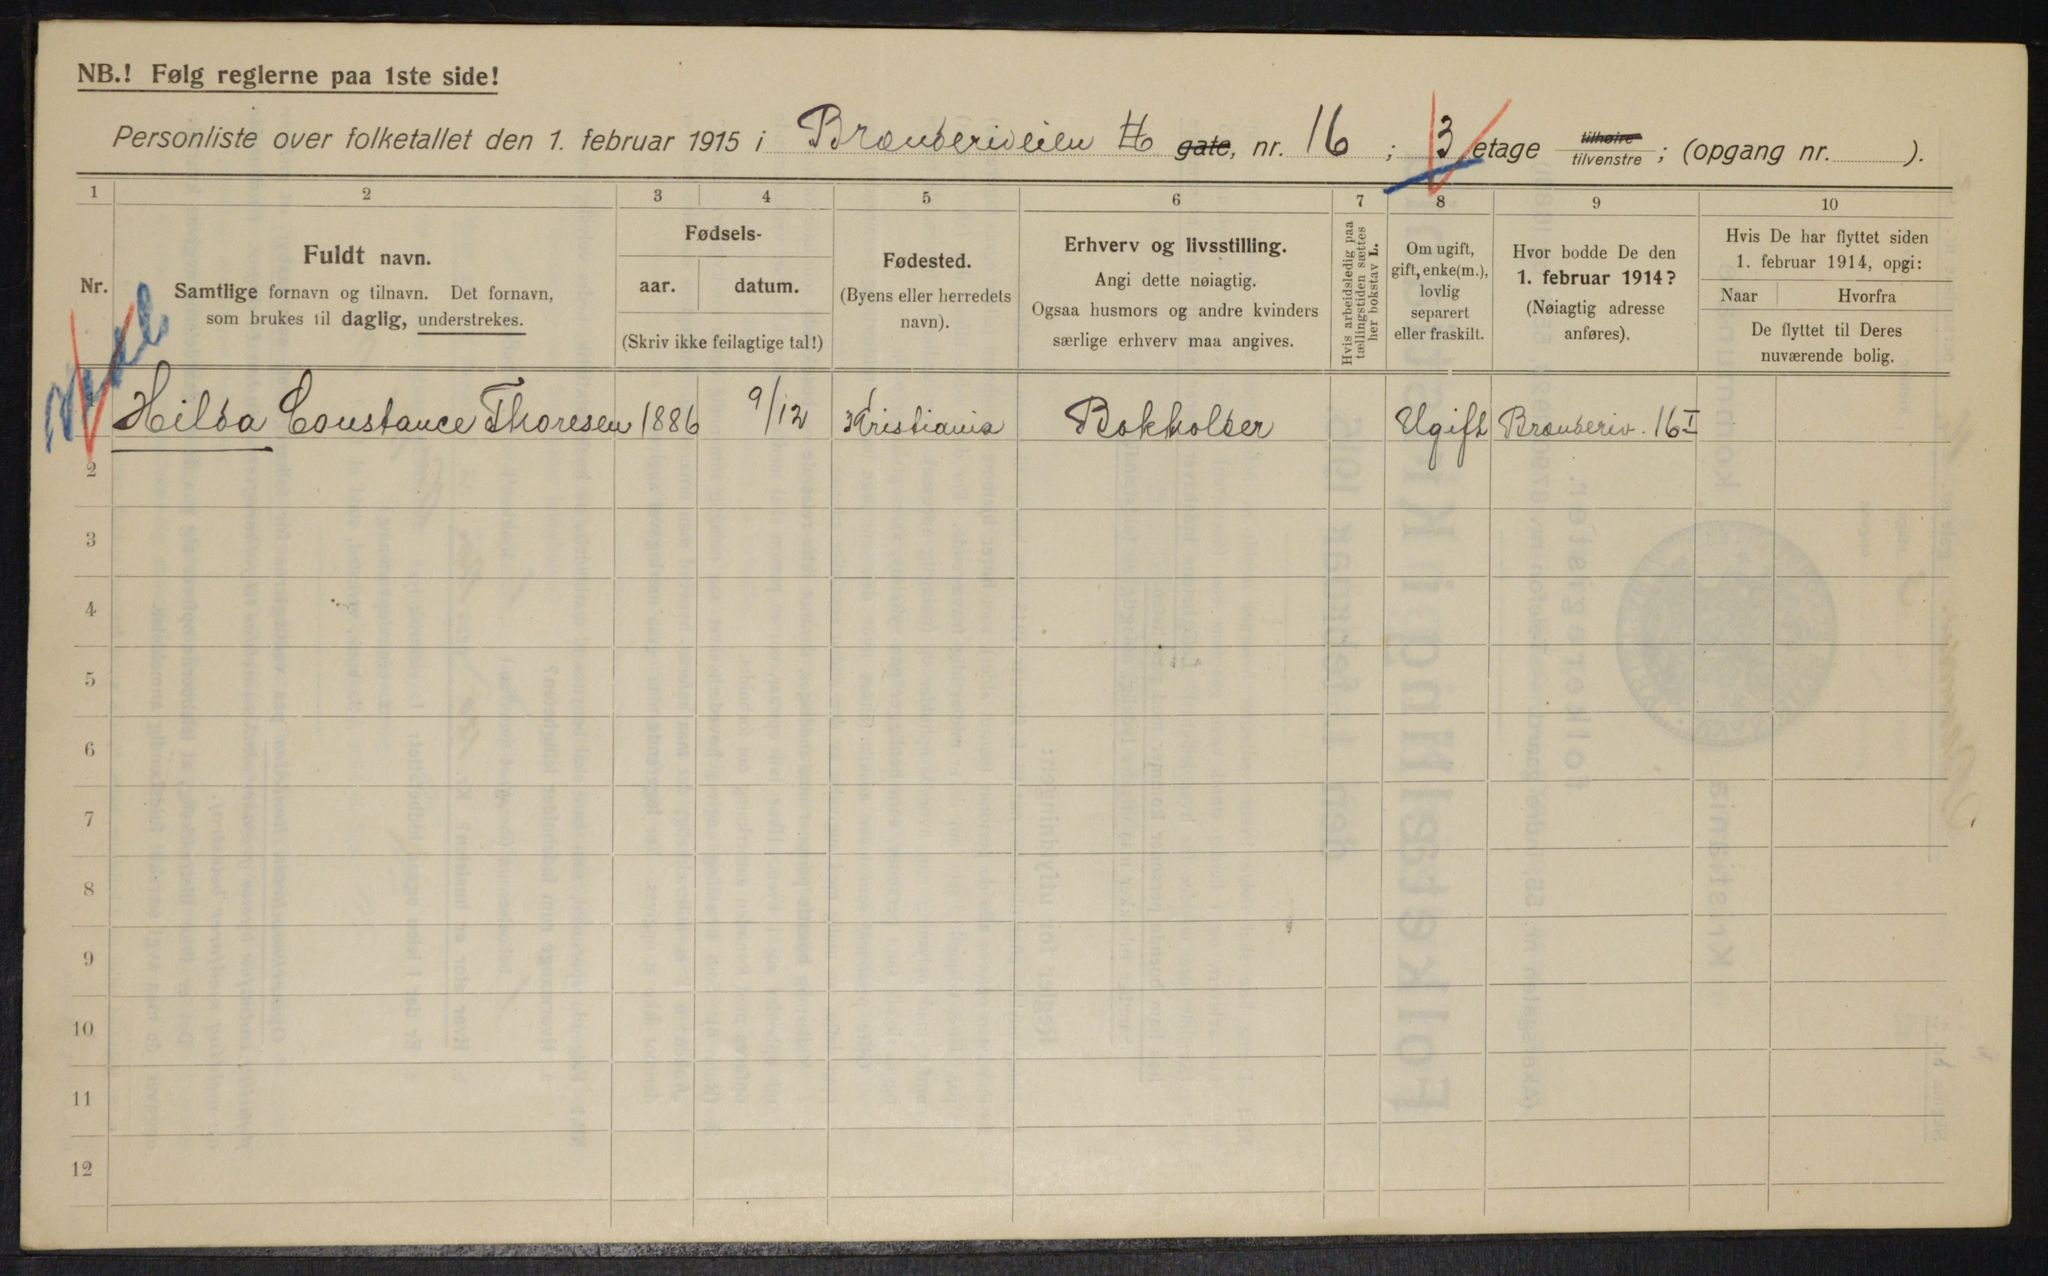 NB.! Følg reglerne paa 1ste side!
Personliste over folketallet den 1. februar 1915 i Brænderiveien gate, nr. 16 ; 3 etage tilhøire tilvenstre ; (opgang nr. ).
1 2 3 4 5 6 7 8 9 10
Nr.
Fuldt navn.
Samtlige fornavn og tilnavn. Det fornavn,
som brukes til daglig, understrekes.
Fødsels-
aar. datum.
(Skriv ikke feilagtige tal!)
Fødested.
(Byens eller herredets
navn).
Erhverv og livsstilling.
Angi dette nøiagtig.
Ogsaa husmors og andre kvinders
særlige erhverv maa angives.
Hvis arbeidsledig paa
tællingstiden sættes
her bokstav L.
Om ugift,
gift, enke(m.),
lovlig
separert
eller fraskilt.
Hvor bodde De den
1. februar 1914?
(Nøiagtig adresse
anføres).
Hvis De har flyttet siden
1. februar 1914, opgi:
Naar Hvorfra
De flyttet til Deres
nuværende bolig.
Hilda Constance Thoresen 1886 9/12 Kristiania Bokholder Ugift Brænderiv. 16 I
2
3
4
5
6
7
8
9
10
11
12